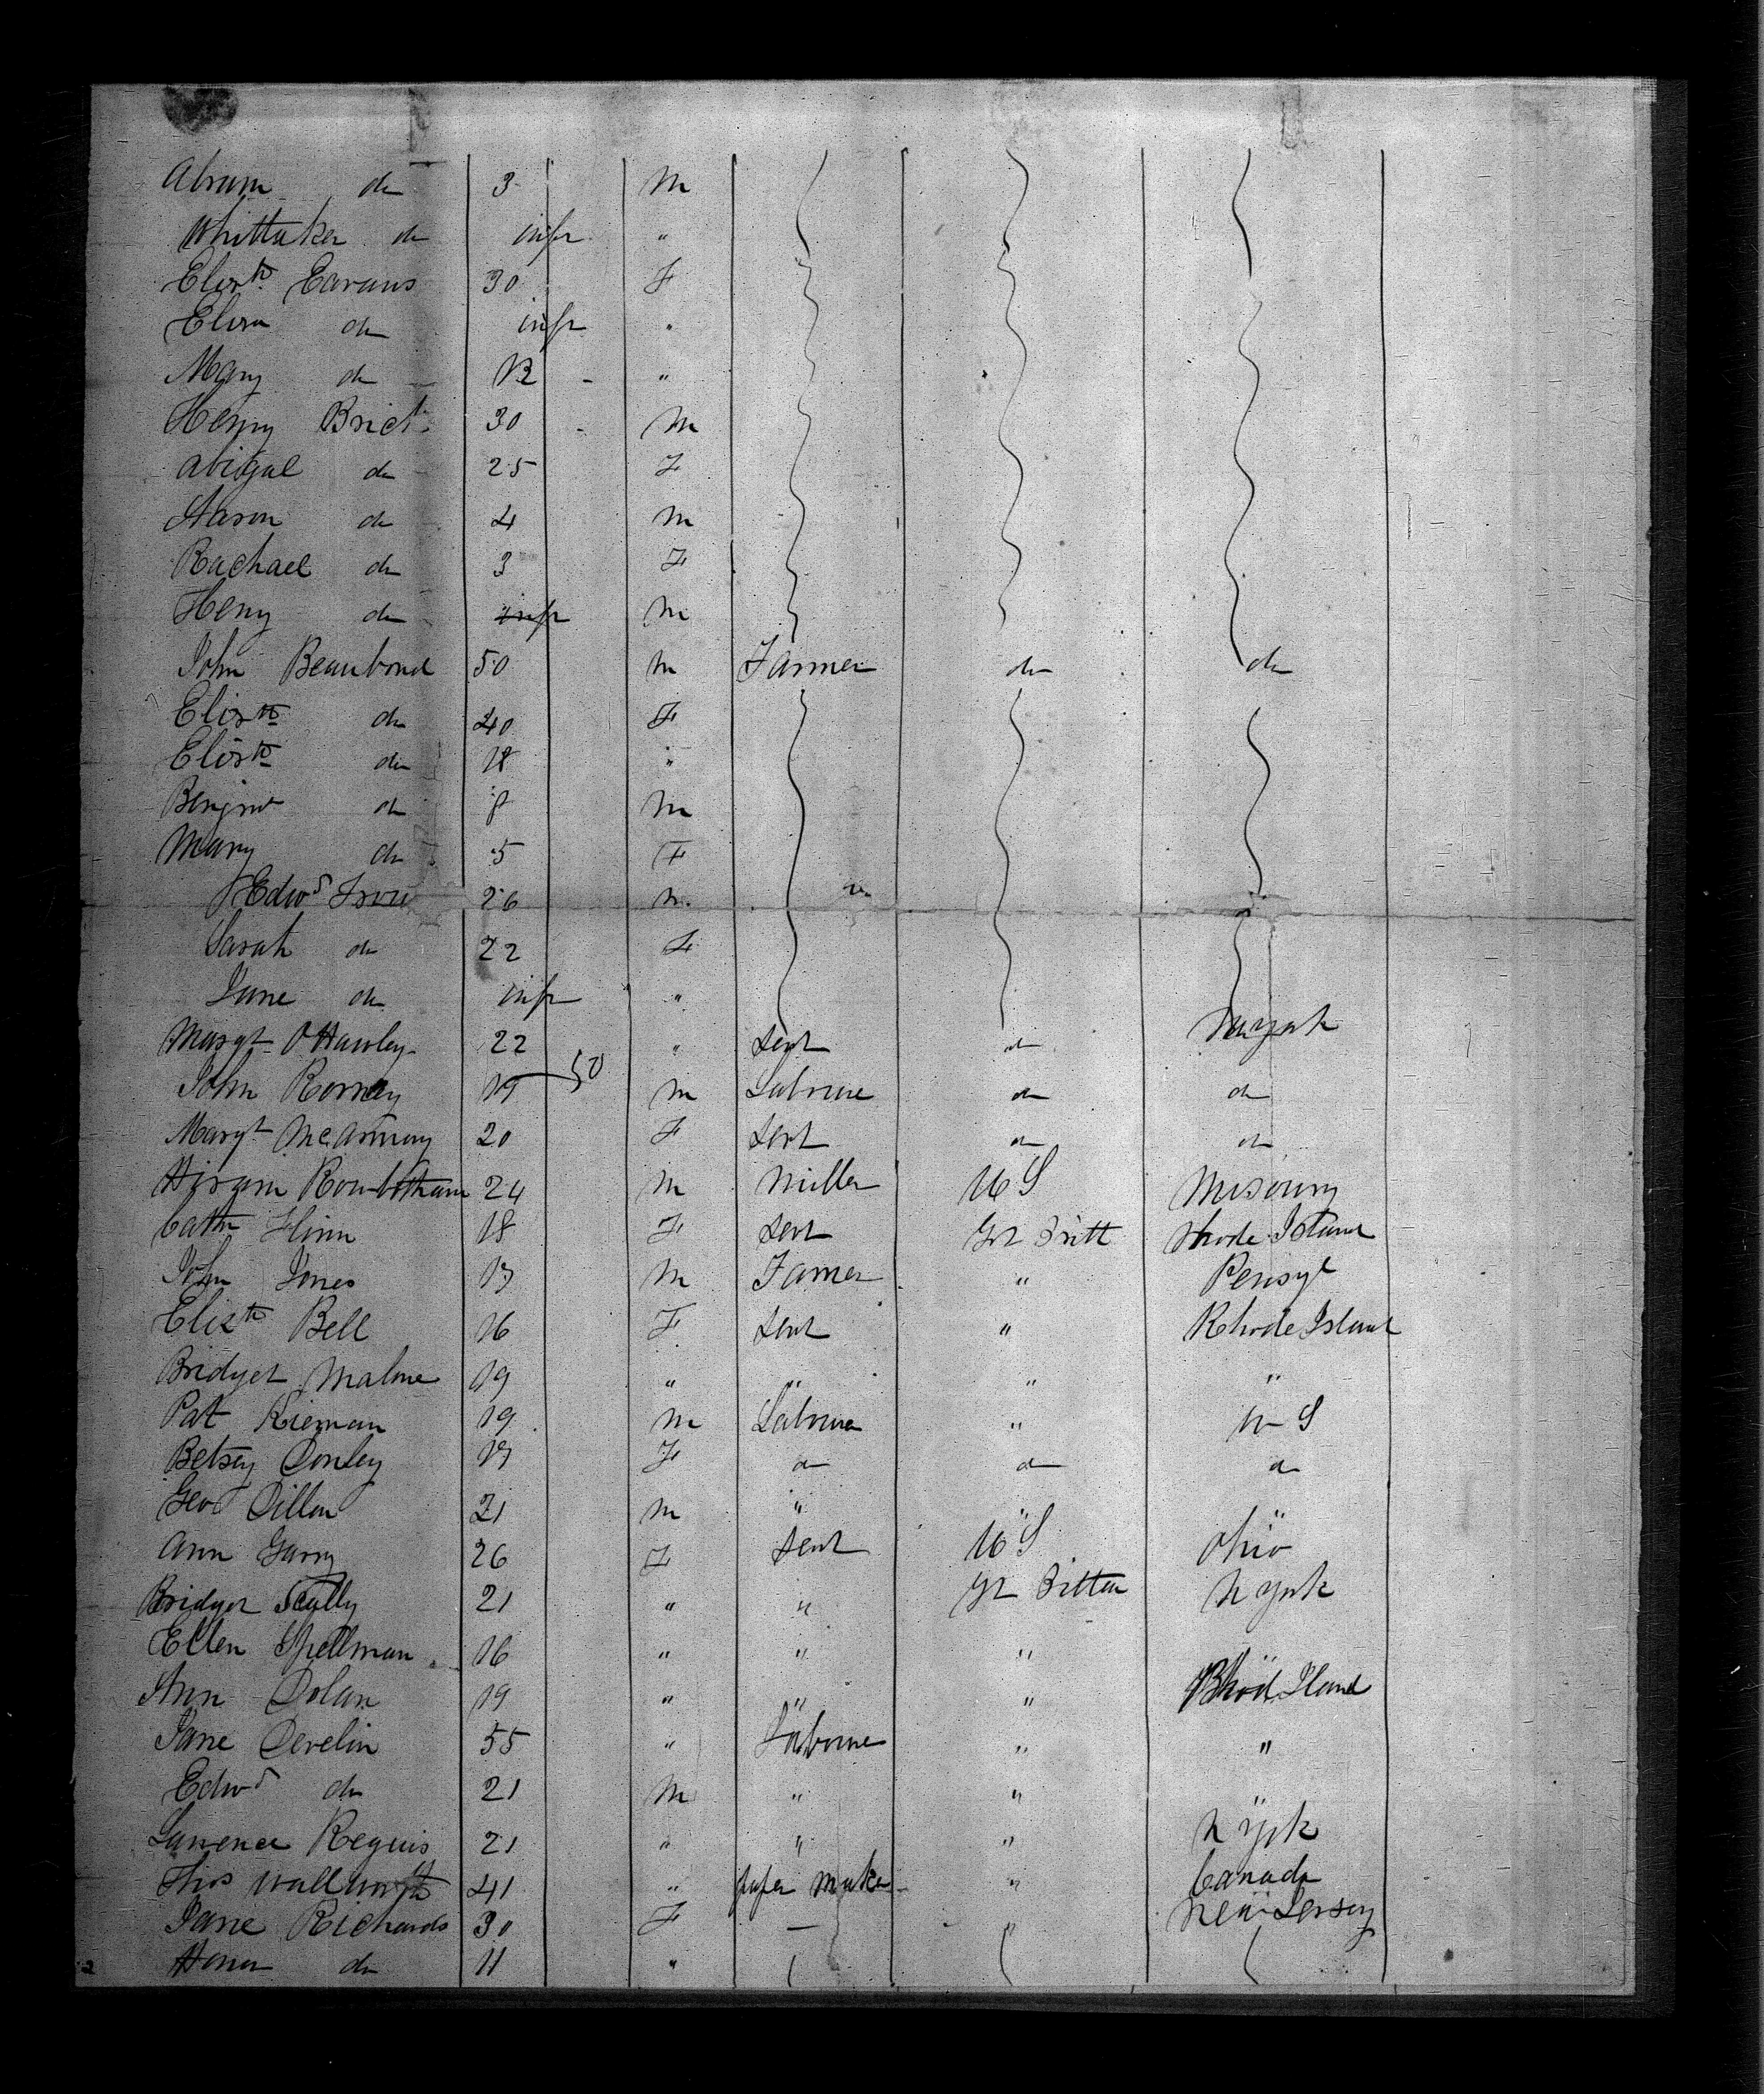 Abram do 3 M
Whittaker do inft "
Elizth Eavans 30 F
Eliza do inft "
Mary do 12 - "
Henry Brict 30 - M
Abigal do 25 F
Aaron do 4 M
Rachael do 3 F
Heny do inft M
John Beaubond 50 M Farmer do do
Elizth do 40 F
Elizth do 18 "
Benjm do 8 M
Mary do 5 F
Edwd 26 M
Sarah do 22 F
Jane do inft "
Margt OHawley 22 " Sert do N york
John Romey 19 50 M Labrur do do
Margt 20 F Sert do do
Hiram Rowbotham 24 M Miller U S Misoury
Cathe Flinn 18 F Sert Gt Britt Rhode Island
John Jones 19 M Farmer " Pensyl
Elizth Bell 16 F Sert " Rhode Island
Bridget Malone 19 " " " "
Pat Kiernan 19 M Labrur " U S
Betsey Donley 19 F do do do
Geo Dillon 21 M " " "
Ann Garry 26 F Sert U S Ohio
Bridget Scully 21 " " Gt Bitten N York
Ellen Spellman 16 " " " "
Ann Dolan 19 " " " Rhod Iland
Jane Develin 55 " Labrur " "
Edwd do 21 M " " "
Lawrence Reguis 21 " " " N York
Thos Wallworth 41 " paper Maker " Canada
Jane Richards 30 F — " New Jersey
Honor do 11 "